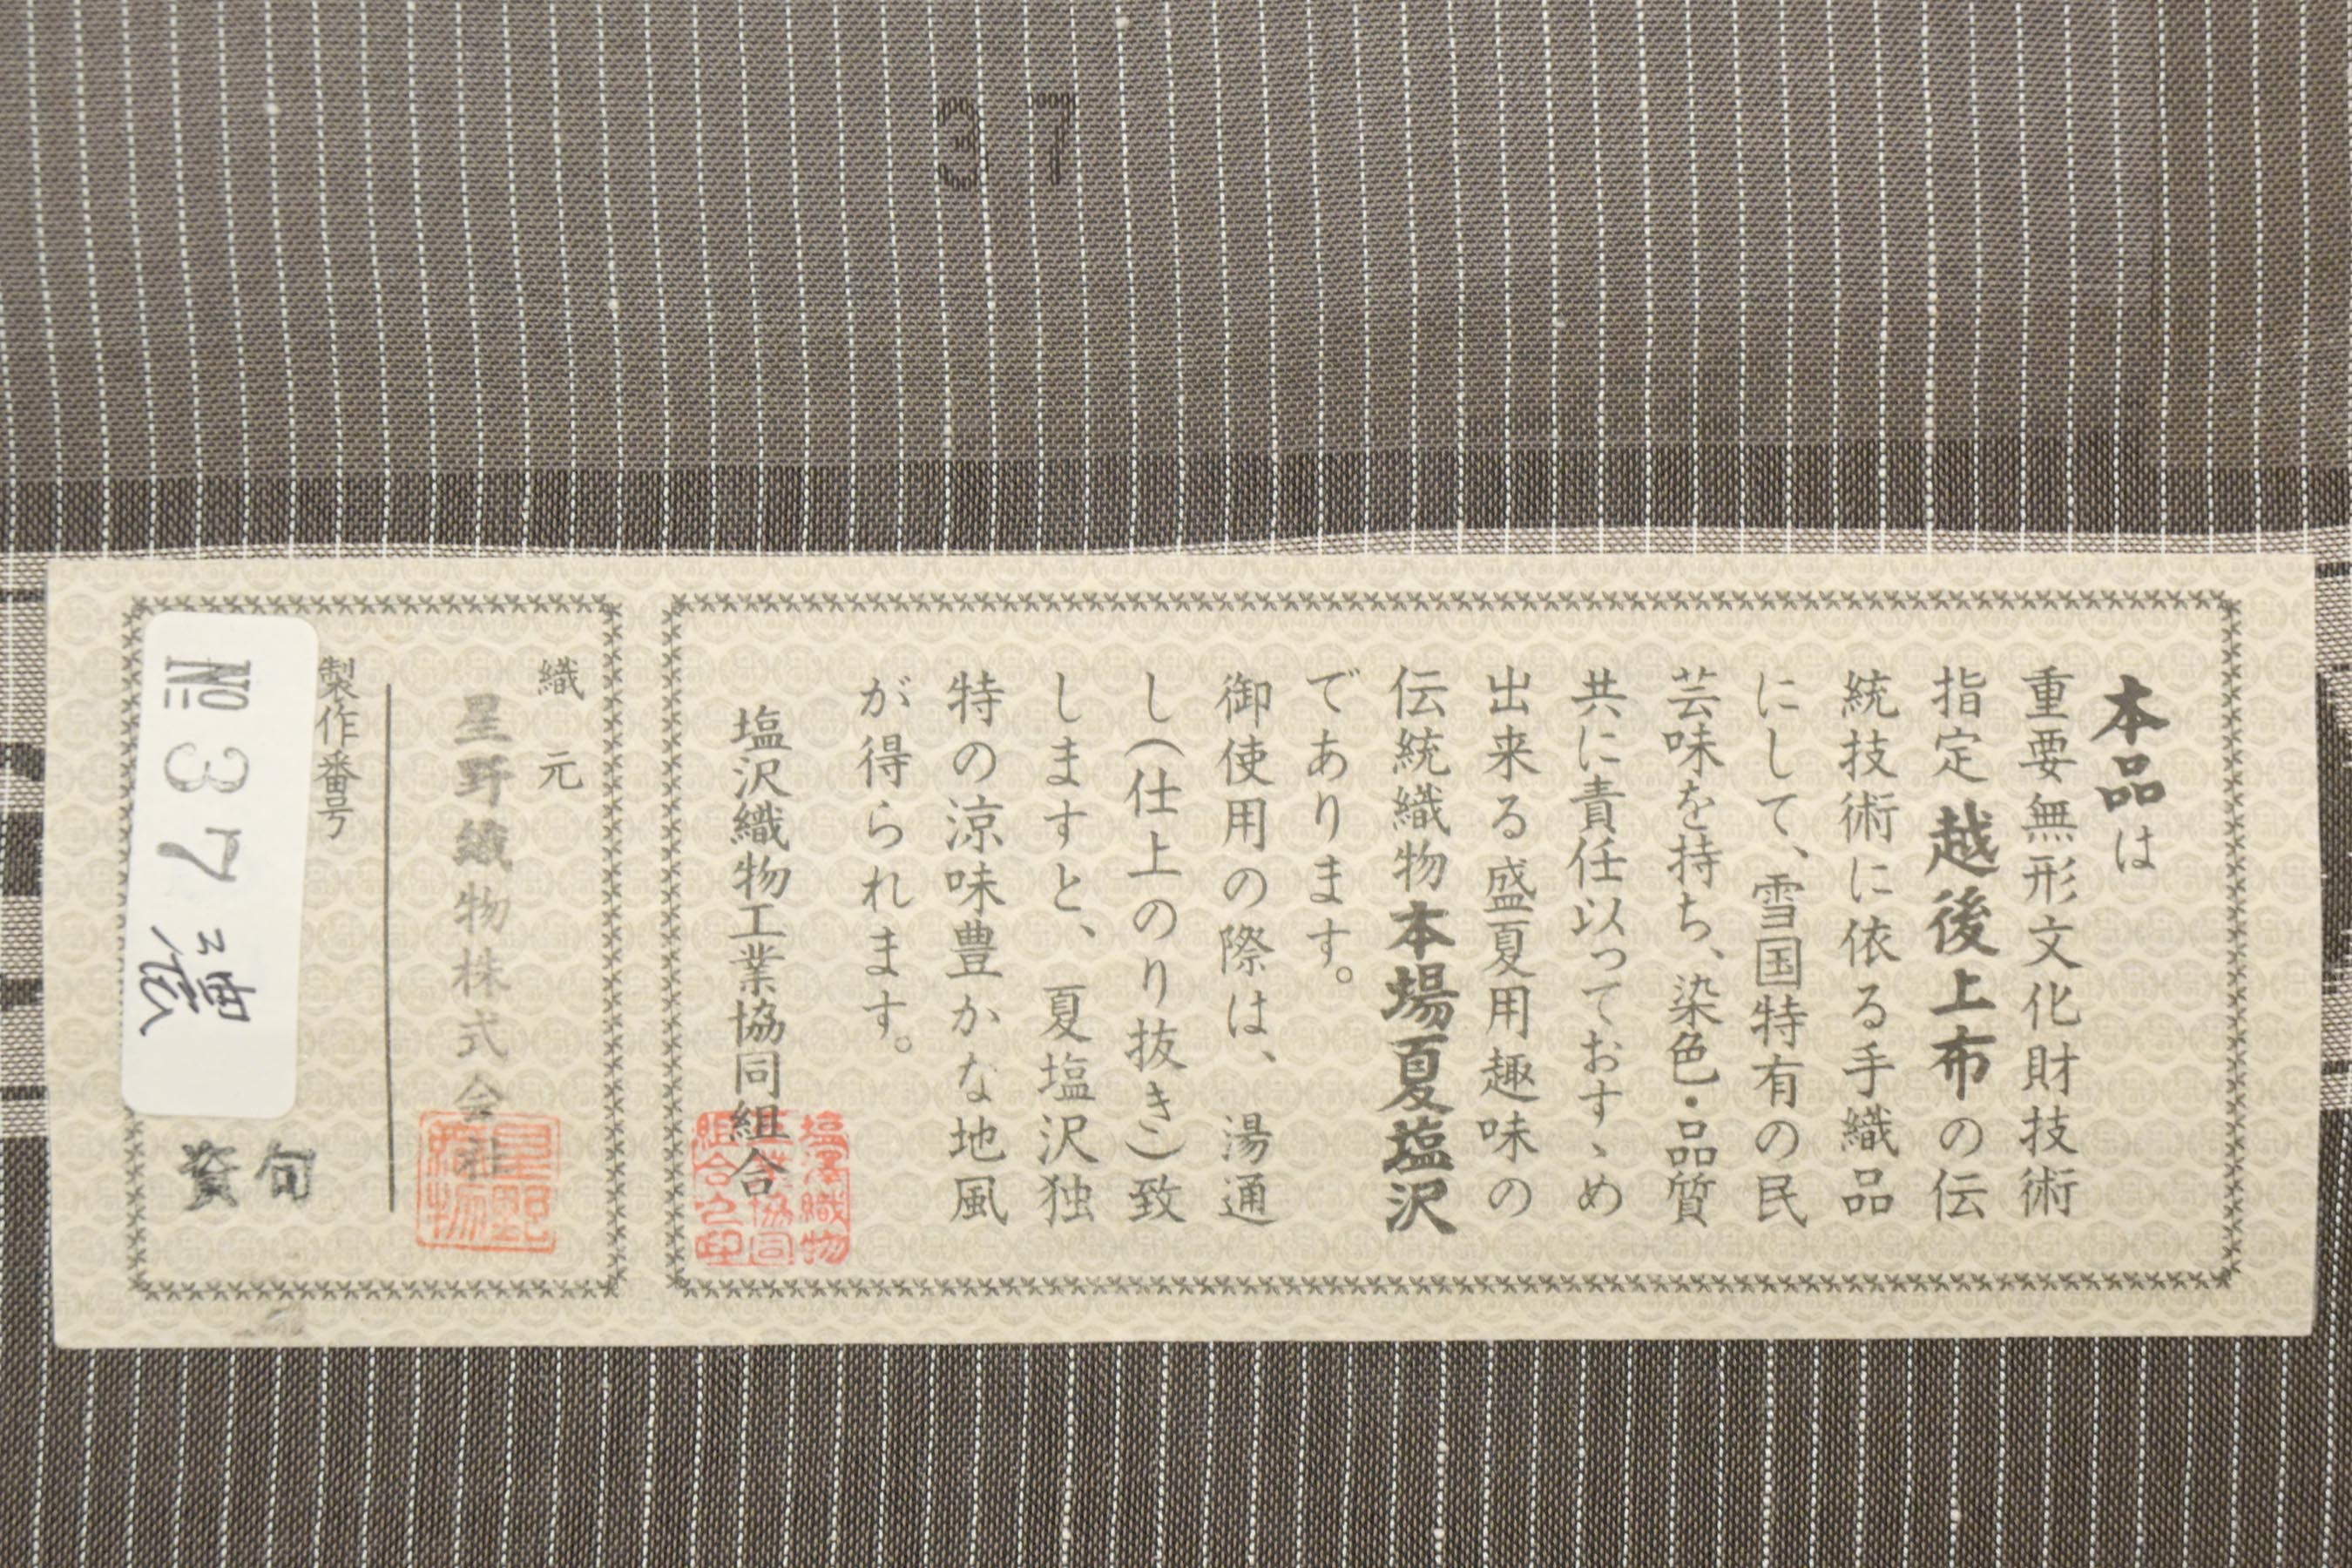 37
本品は
重要無形文化財技術
指定越後上布の伝
統技術に依る手織品
にして、雪国特有の民
芸味を持ち、染色・品質
共に責任以っておすゝめ
出来る盛夏用趣味の
伝統織物本場夏塩沢
であります。
御使用の際は、湯通
し(仕上のり抜き)致
しますと、夏塩沢独
特の涼味豊かな地風
が得られます。
塩沢織物工業協同組合
塩澤織物
工業協同
組合之印
織元
星野織物株式会社
星野
織物
製作番号
№37